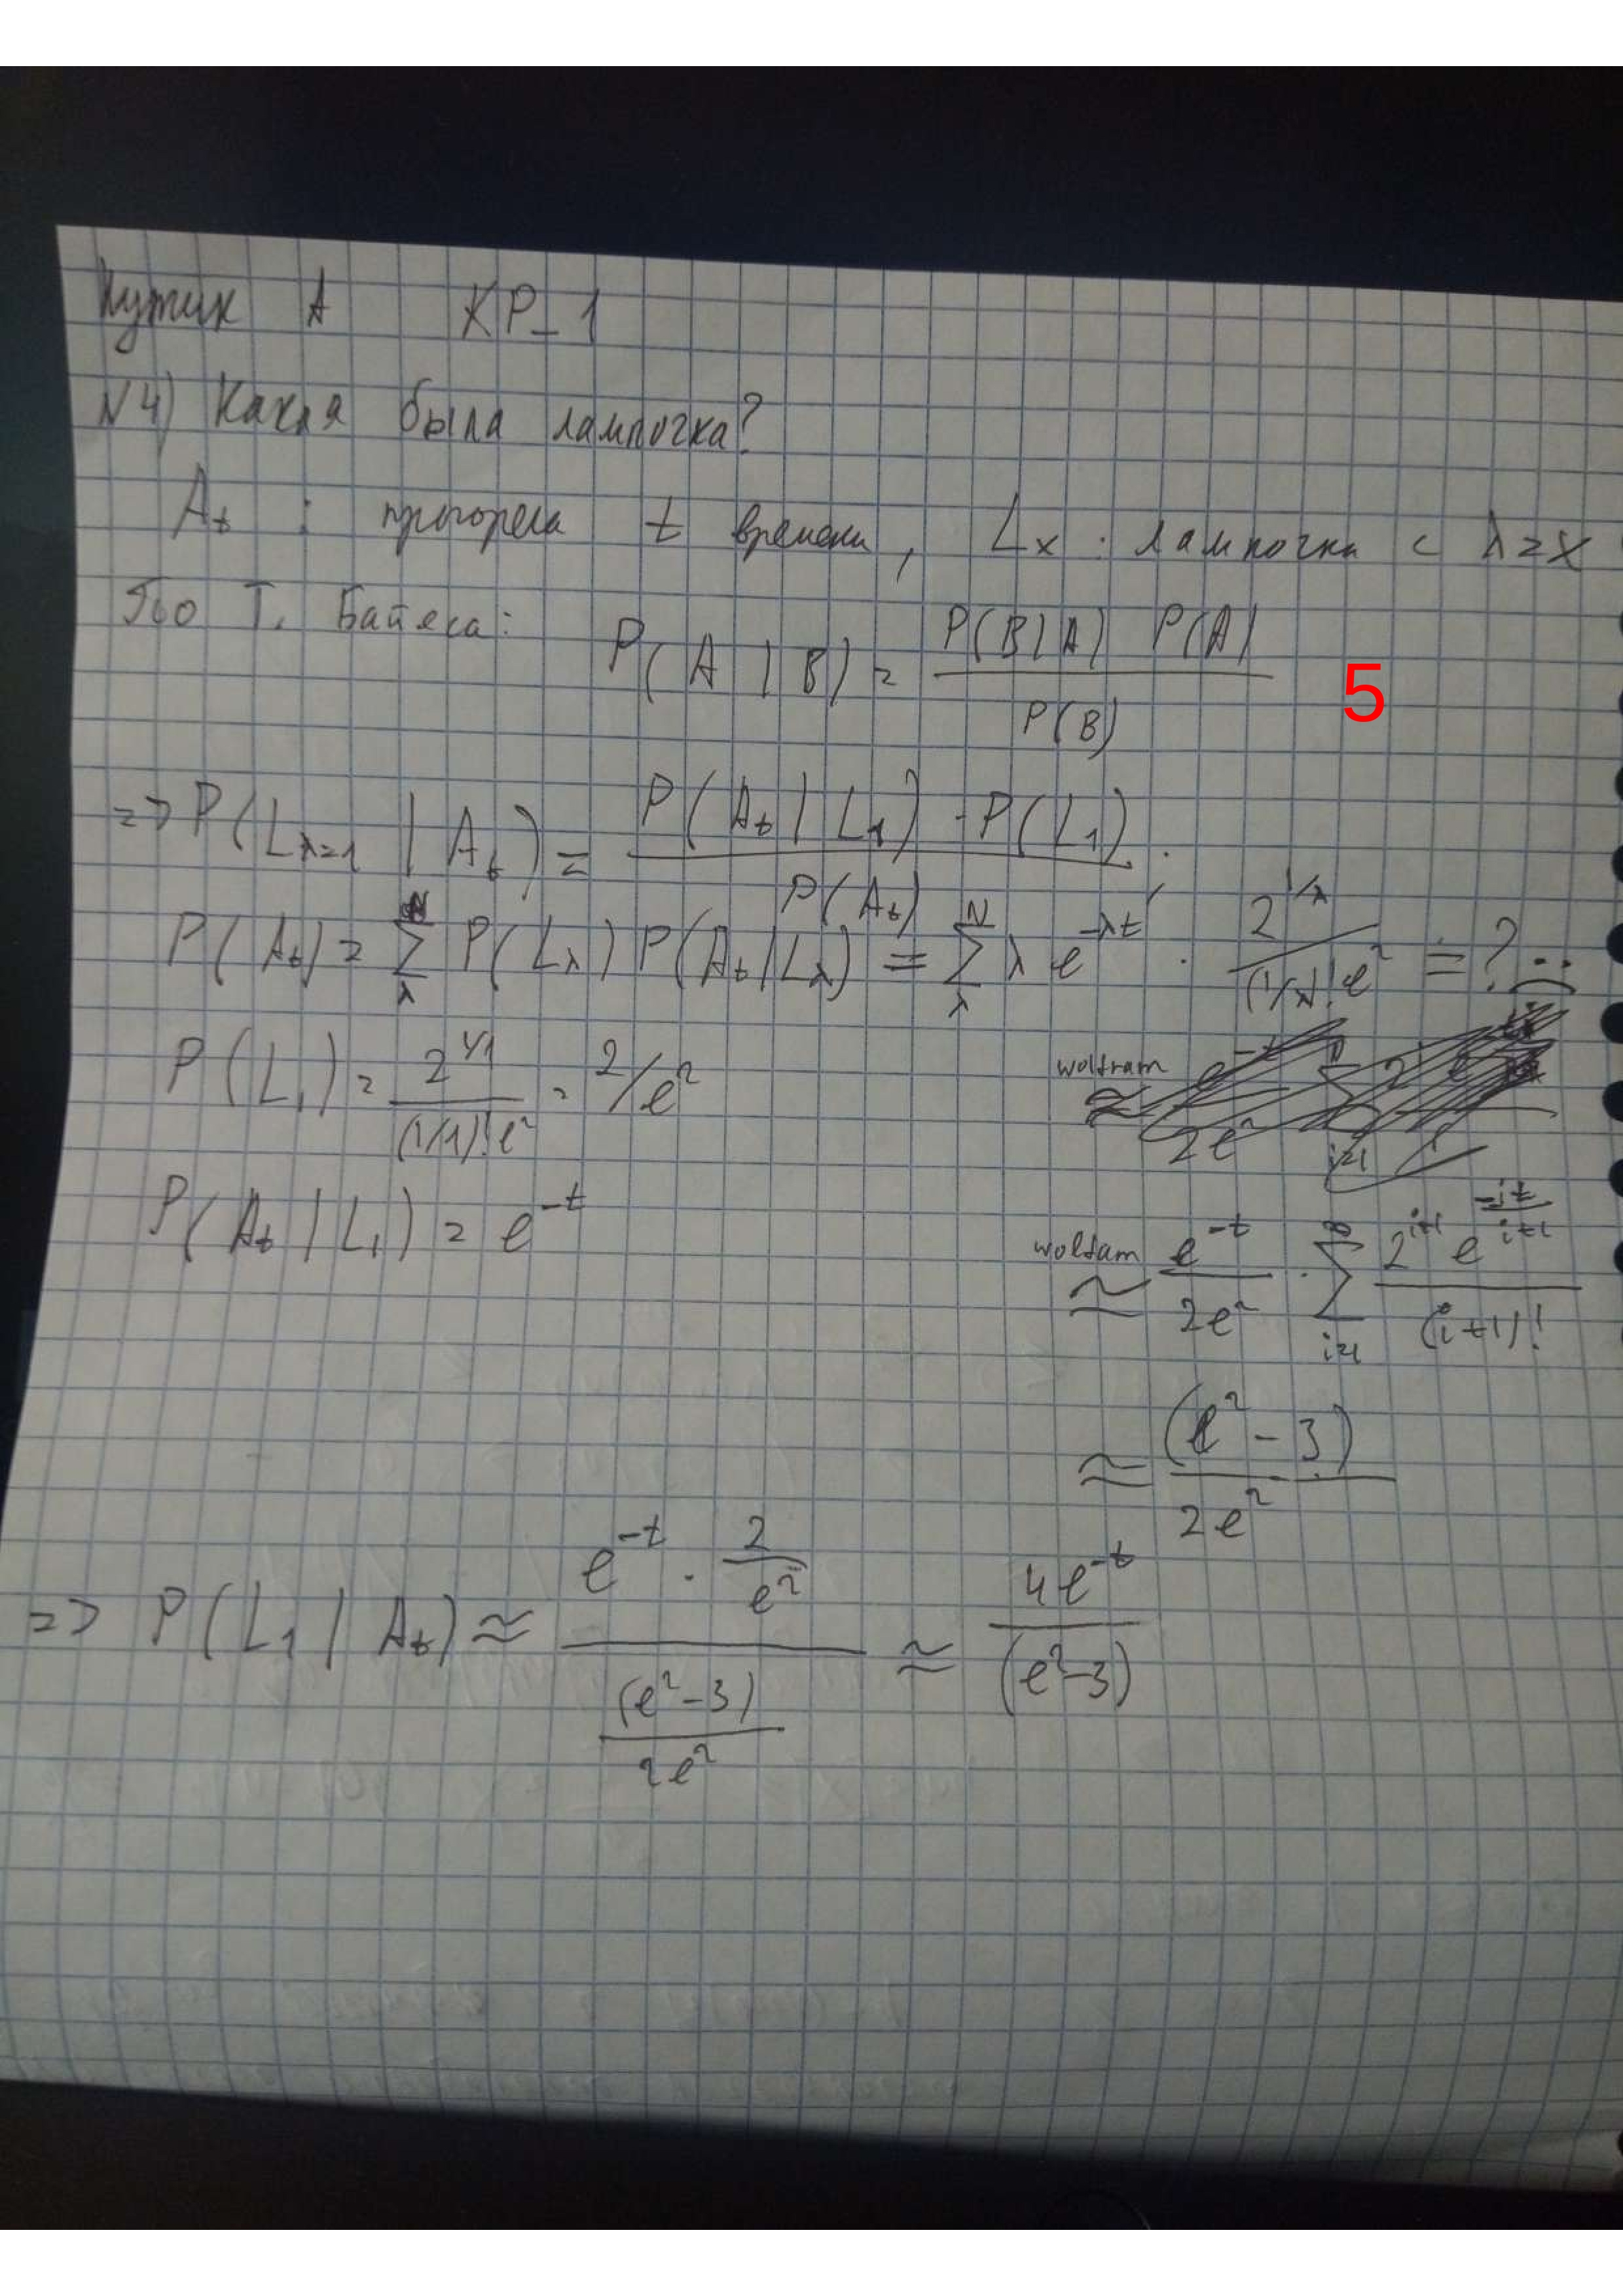 А КР_1
N4) Какая была лампочка?
A_t : прогорела t времени, L_x : лампочка с λ = x
По Т. Байеса: P(A | B) = P(B|A) P(A) / P(B)
5
=> P(L_{λ=1} | A_t) = P(A_t | L_1) · P(L_1) / P(A_t) .
P(A_t) = Σ_λ^N P(L_λ) P(A_t|L_λ) = Σ_λ^N λ e^{-λt} · 2^{1/λ} / (1/λ)! e^2 = ? :(
P(L_1) = 2^{1/1} / (1/1)! e^2 = 2/e^2
wolfram ≈
P(A_t | L_1) = e^{-t}
wolfam ≈ e^{-t} / 2e^2 · Σ_{i=1}^∞ 2^{i+1} e^{-it/i+1} / (i+1)!
≈ (e^2 - 3) / 2e^2
=> P(L_1 | A_t) ≈ e^{-t} · 2/e^2 / (e^2-3)/2e^2 ≈ 4e^{-t} / (e^2-3)